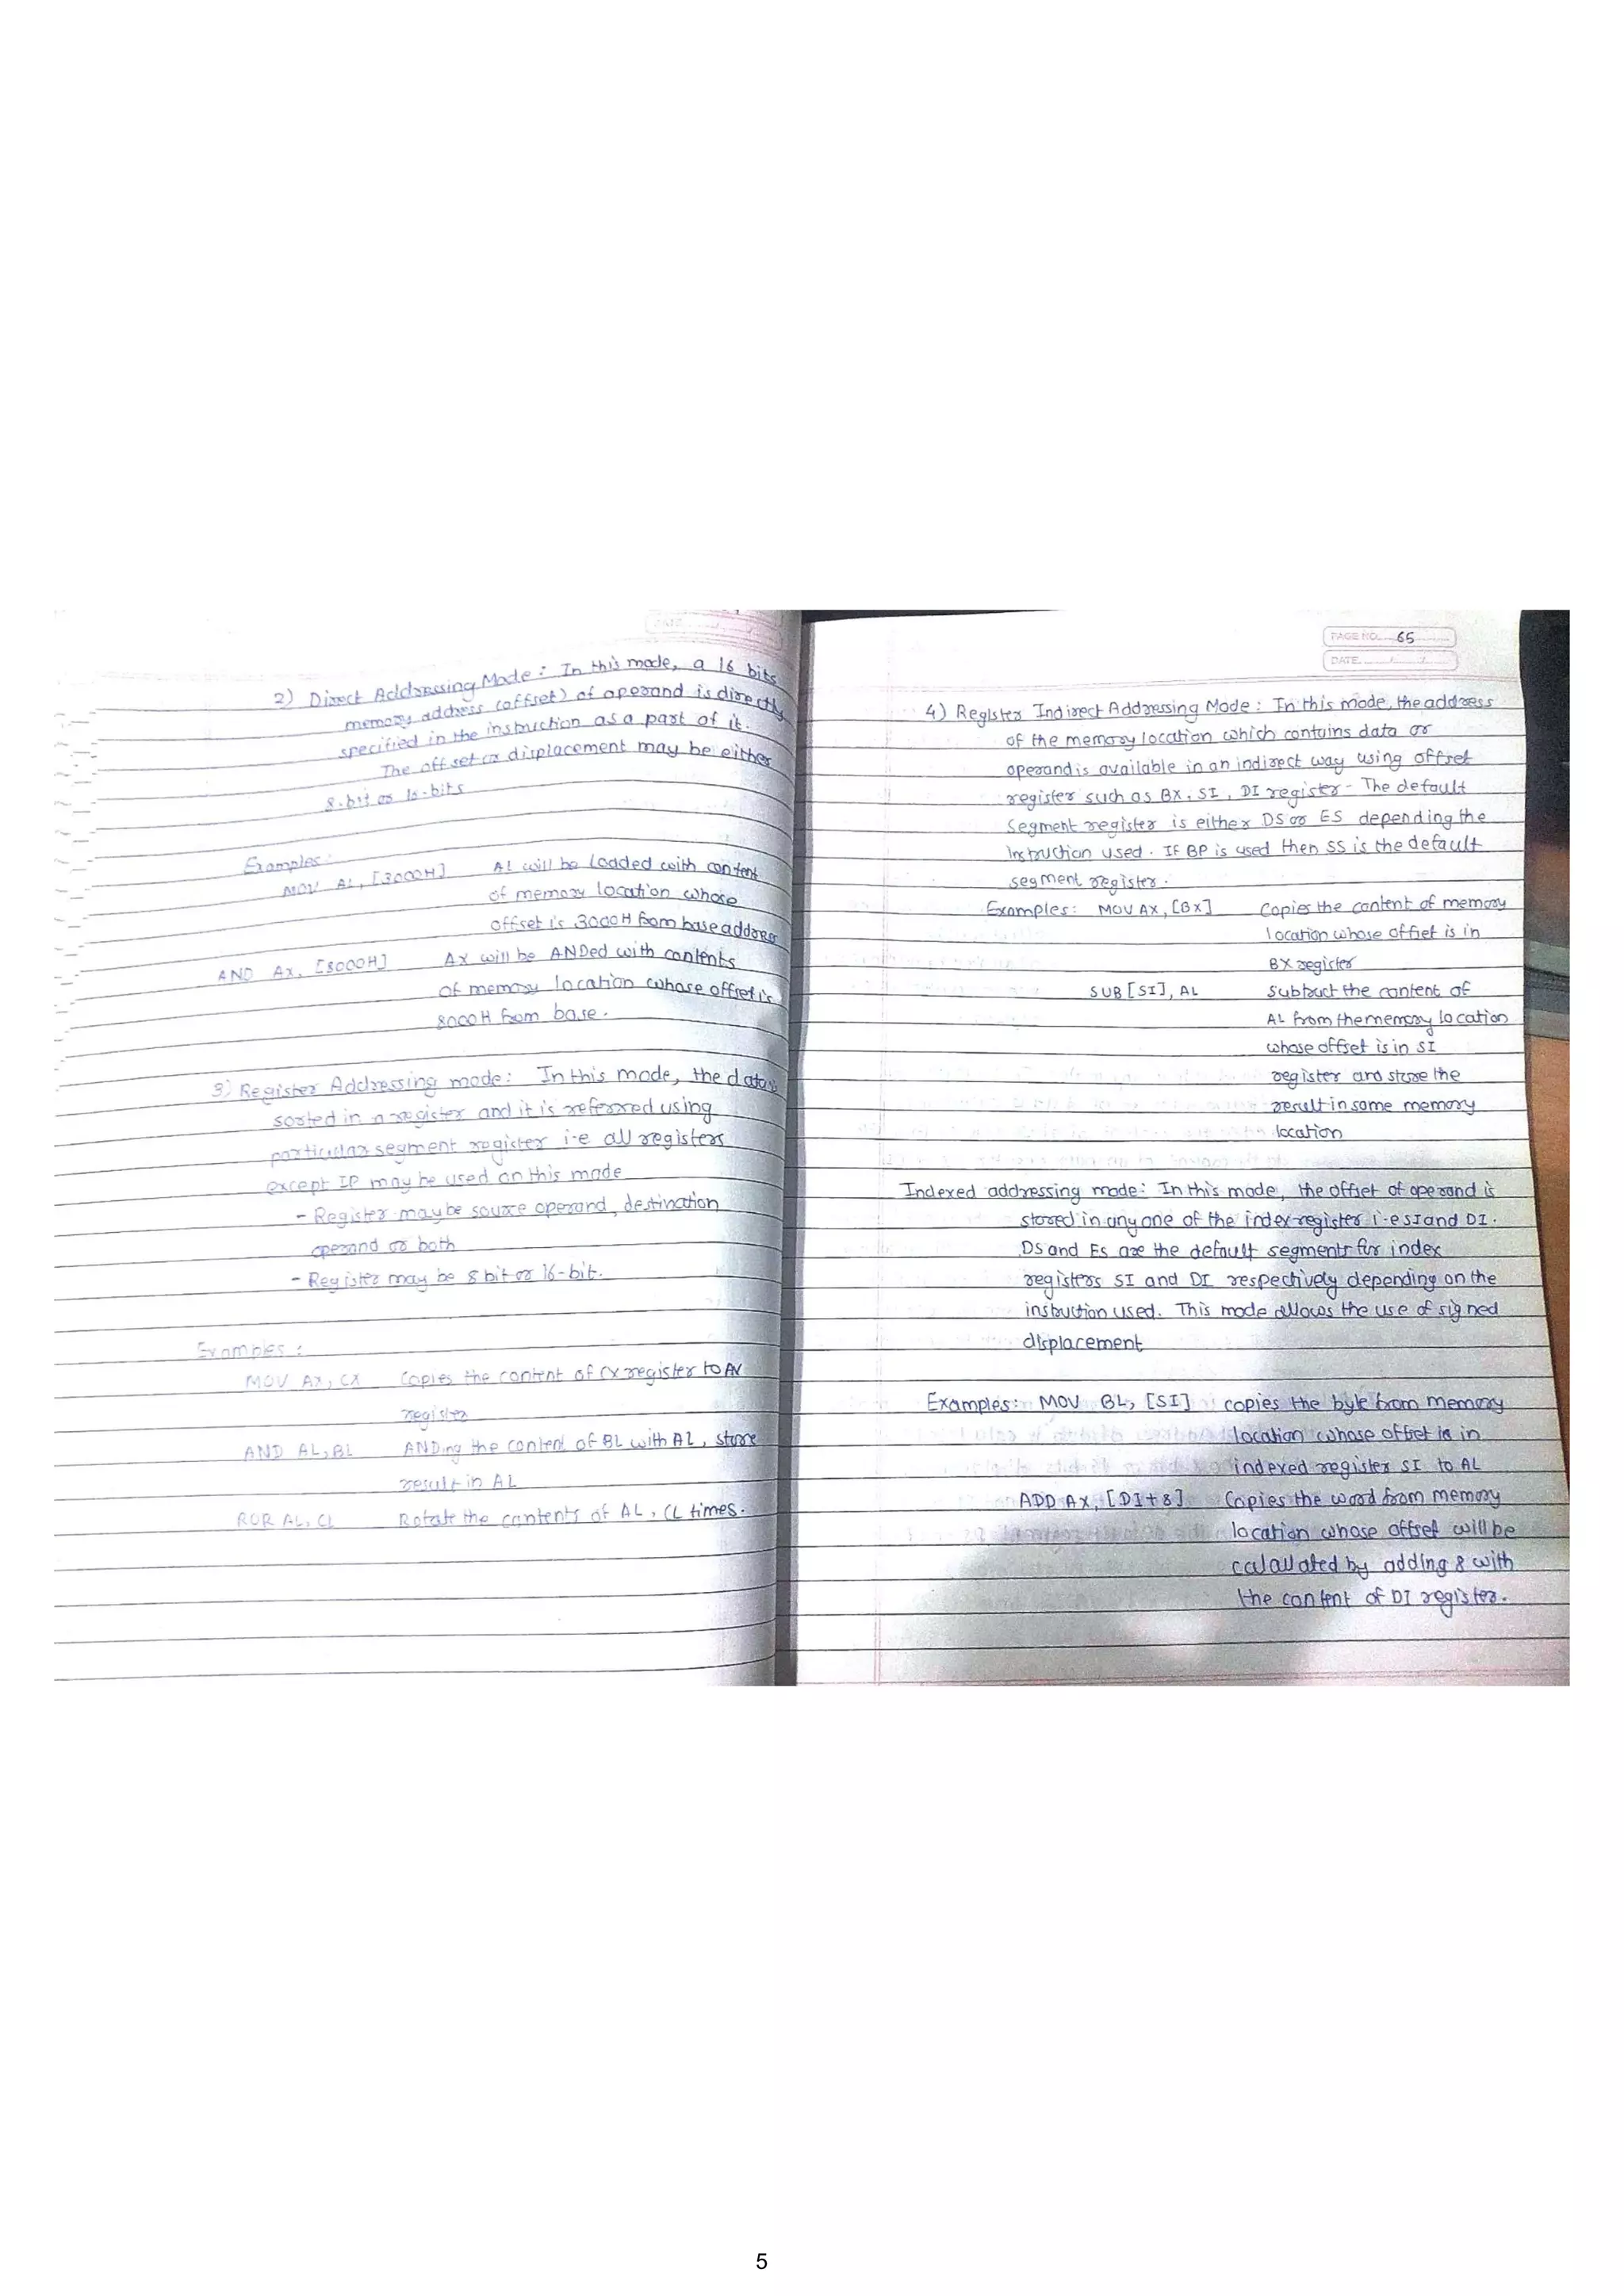 DATE
2) Direct Addressing Mode : In this mode, a 16 bits
memory address (offset) of operand is directly
specified in the instruction as a part of it.
The offset or displacement may be either
8-bit or 16-bits
Examples:
MOV AL, [3000H] AL will be loaded with content
of memory location whose
offset is 3000H from base address
AND AX, [8000H] AX will be ANDed with contents
of memory location whose offset is
8000H from base.
3) Register Addressing mode: In this mode, the data is
sorted in a register and it is referred using
particular segment register i-e all registers
except IP may be used on this mode
- Register may be source operand, destination
operand or both
- Register may be 8 bit or 16-bit.
Examples :
MOV AX, CX Copies the content of CX register to AX
register
AND AL, BL ANDing the content of BL with AL, store
result in AL
ROR AL, CL Rotate the contents of AL, CL times.
PAGE NO. 65
DATE
4) Register Indirect Addressing Mode : In this mode, the address
of the memory location which contains data or
operand is available in an indirect way using offset
register such as BX, SI, DI register- The default
Segment register is either DS or ES depending the
Instruction used. If BP is used then SS is the default
segment register.
Examples: MOV AX, [BX] Copies the content of memory
location whose offset is in
BX register
SUB [SI], AL Subtract the content of
AL from the memory location
whose offset is in SI
register and store the
result in same memory
location
Indexed addressing mode: In this mode, the offset of operand is
stored in any one of the index register i-e SI and DI.
DS and ES are the default segments for index
registers SI and DI respectively depending on the
instruction used. This mode allows the use of signed
displacement
Examples: MOV BL, [SI] copies the byte from memory
location whose offset is in
indexed register SI to AL
ADD AX, [DI+8] Copies the word from memory
location whose offset will be
calculated by adding 8 with
the content of DI register.
5